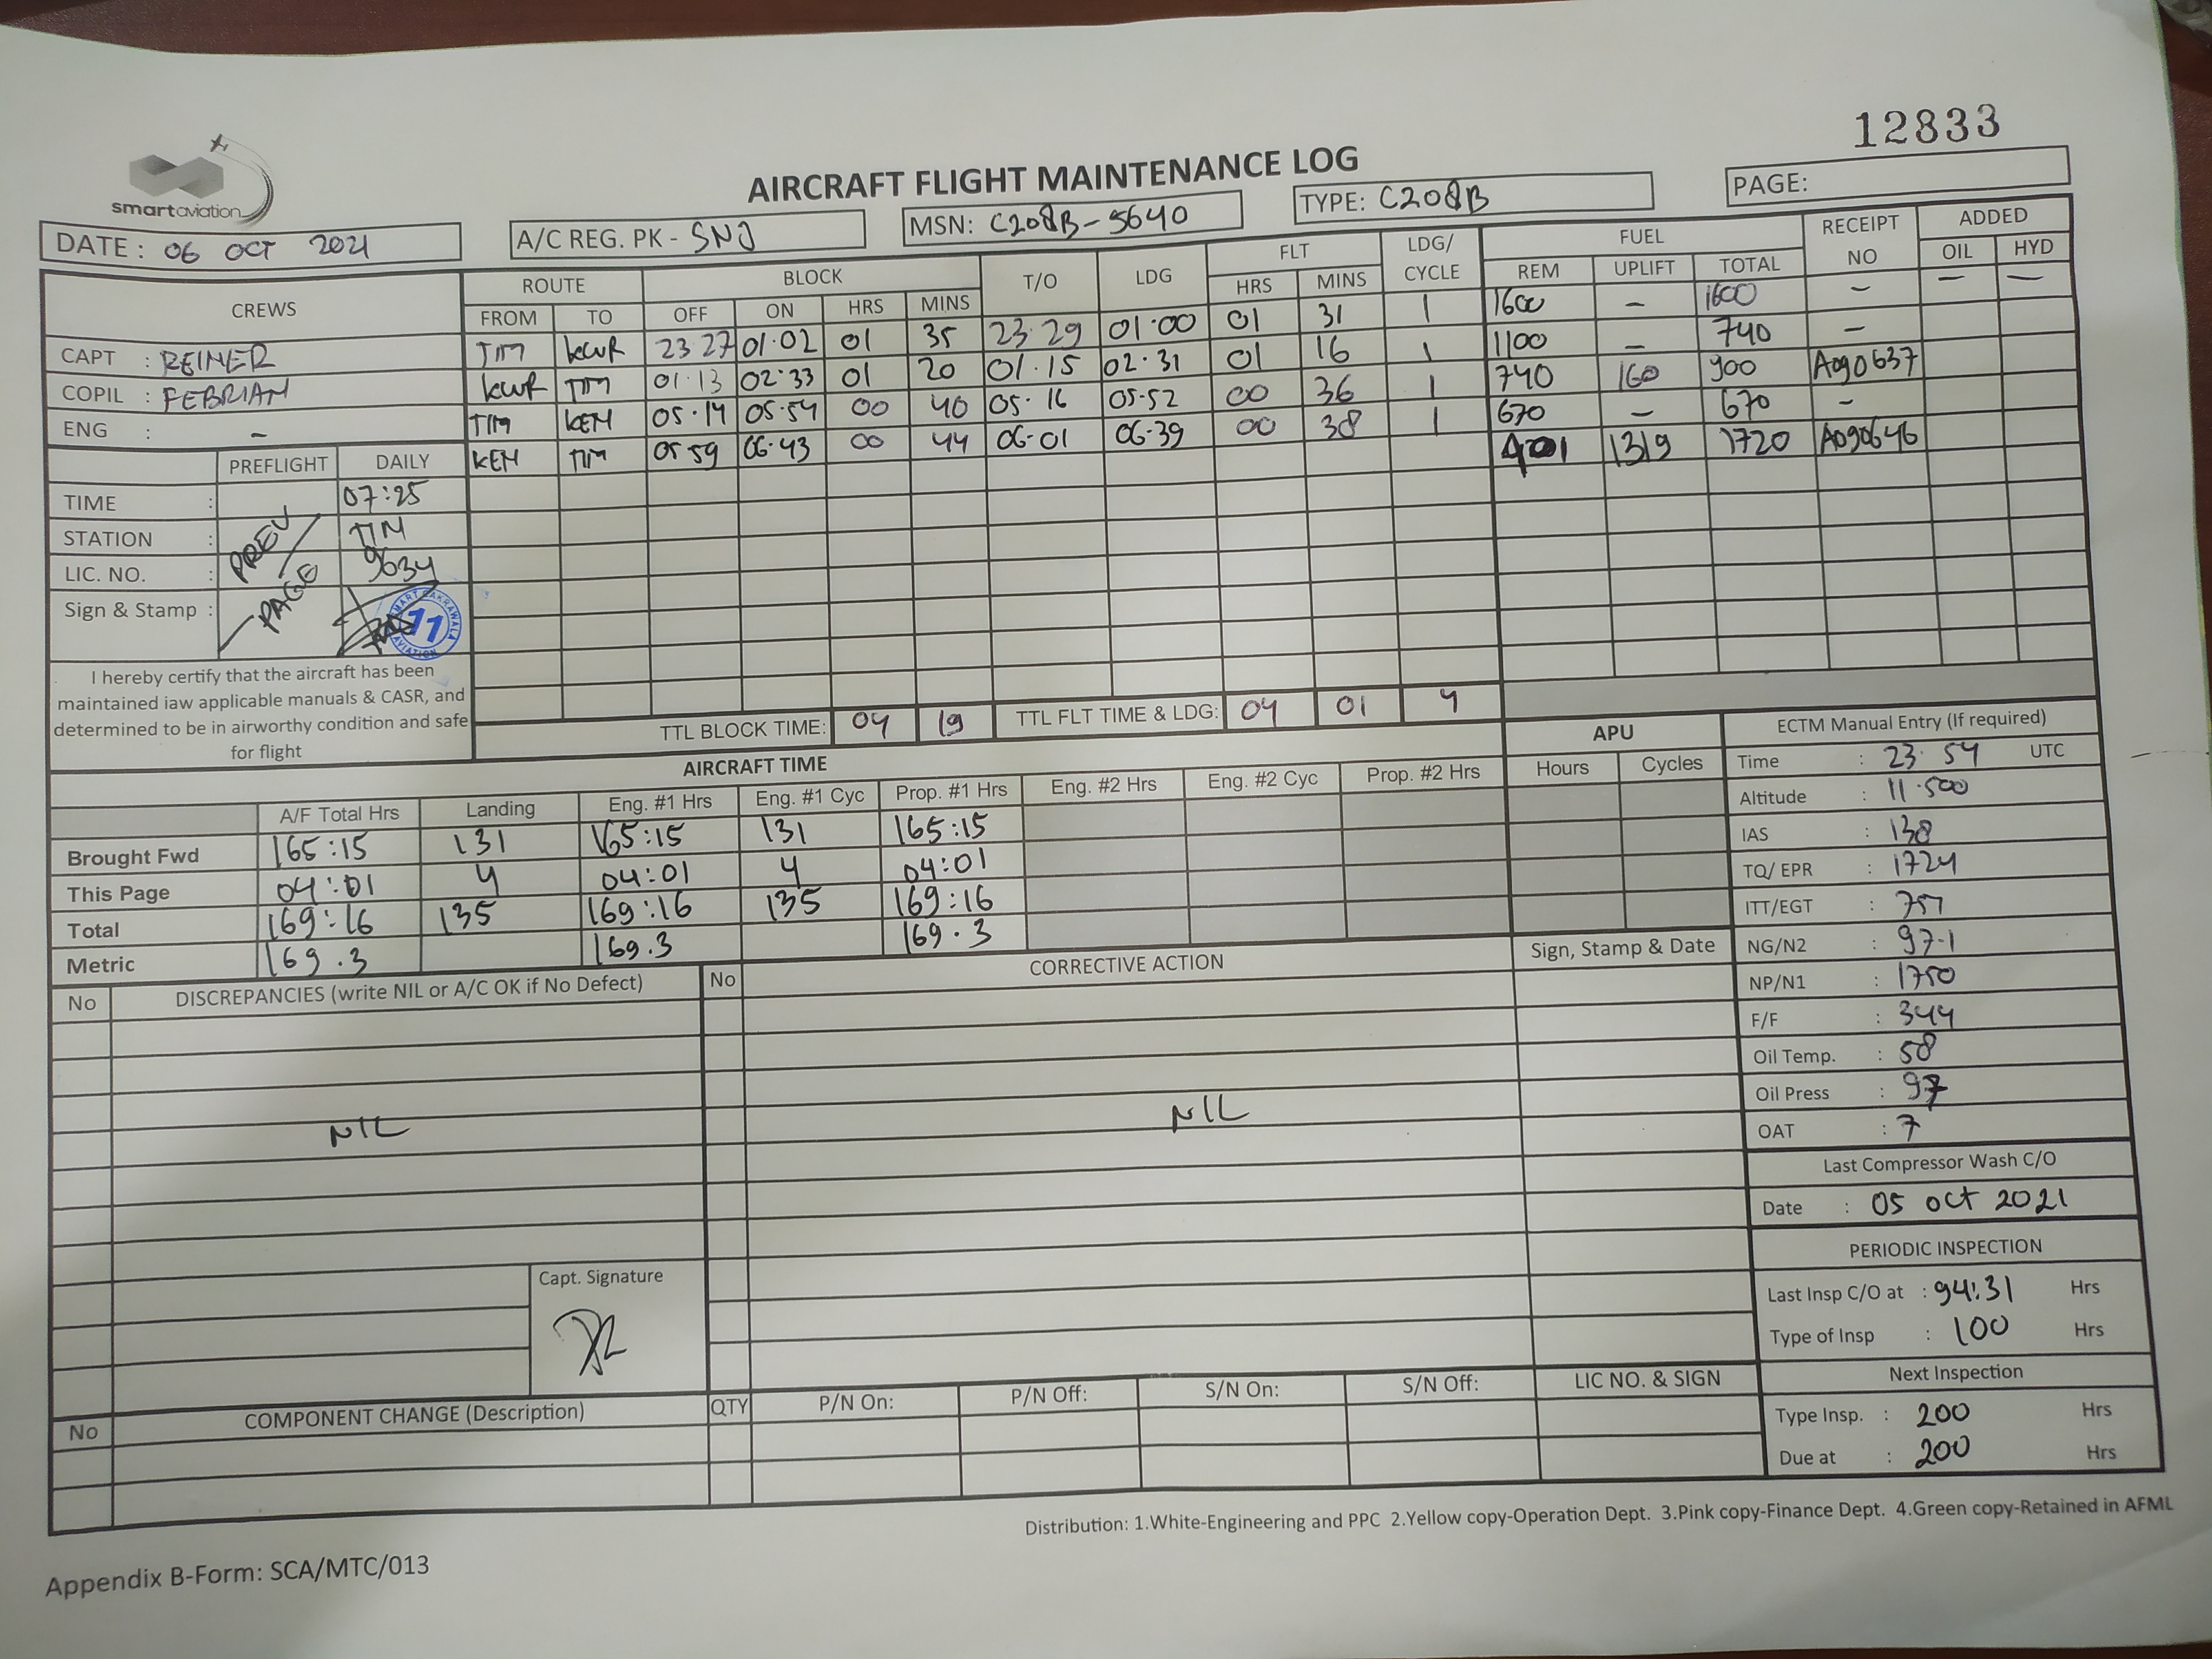 12833
smartaviation
AIRCRAFT FLIGHT MAINTENANCE LOG
PAGE:
DATE : 06 OCT 2021
A/C REG. PK - SNJ
MSN: C208B-5640
TYPE: C208B
CREWS ROUTE BLOCK T/O LDG FLT LDG/ CYCLE FUEL RECEIPT NO ADDED
FROM TO OFF ON HRS MINS HRS MINS REM UPLIFT TOTAL OIL HYD
TIM KWR 23 27 01·02 01 35 23·29 01·00 01 31 1 1600 – 1600 – – –
KWR TIM 01·13 02·33 01 20 01·15 02·31 01 16 1 1100 – 740 –
TIM KEM 05·14 05·54 00 40 05·16 05·52 00 36 1 740 160 900 A090637
KEM TIM 05 59 06·43 00 44 06·01 06·39 00 38 1 670 – 670 –
1319 1720 A090646
CAPT : REINER
COPIL : FEBRIAN
ENG : –
PREFLIGHT DAILY
TIME : 07:25
STATION : TIM
LIC. NO. : 9634
Sign & Stamp :
PREV
PAGE
SMART CAKRAWALA AVIATION
11
I hereby certify that the aircraft has been
maintained iaw applicable manuals & CASR, and
determined to be in airworthy condition and safe
for flight
TTL BLOCK TIME: 04 19 TTL FLT TIME & LDG: 04 01 4
AIRCRAFT TIME
APU
A/F Total Hrs Landing Eng. #1 Hrs Eng. #1 Cyc Prop. #1 Hrs Eng. #2 Hrs Eng. #2 Cyc Prop. #2 Hrs Hours Cycles
Brought Fwd 165:15 131 165:15 131 165:15
This Page 04:01 4 04:01 4 04:01
Total 169:16 135 169:16 135 169:16
Metric 169.3 169.3 169.3
ECTM Manual Entry (If required)
Time : 23·54 UTC
Altitude : 11·500
IAS : 138
TQ/ EPR : 1724
ITT/EGT :
NG/N2 : 97·1
NP/N1 : 1750
F/F : 344
Oil Temp. : 58
Oil Press : 97
OAT : 7
Last Compressor Wash C/O
Date : 05 OCT 2021
PERIODIC INSPECTION
Last Insp C/O at : 94:31 Hrs
Type of Insp : 100 Hrs
Next Inspection
Type Insp. : 200 Hrs
Due at : 200 Hrs
No DISCREPANCIES (write NIL or A/C OK if No Defect) No CORRECTIVE ACTION Sign, Stamp & Date
NIL NIL
Capt. Signature
No COMPONENT CHANGE (Description) QTY P/N On: P/N Off: S/N On: S/N Off: LIC NO. & SIGN
Distribution: 1.White-Engineering and PPC 2.Yellow copy-Operation Dept. 3.Pink copy-Finance Dept. 4.Green copy-Retained in AFML
Appendix B-Form: SCA/MTC/013